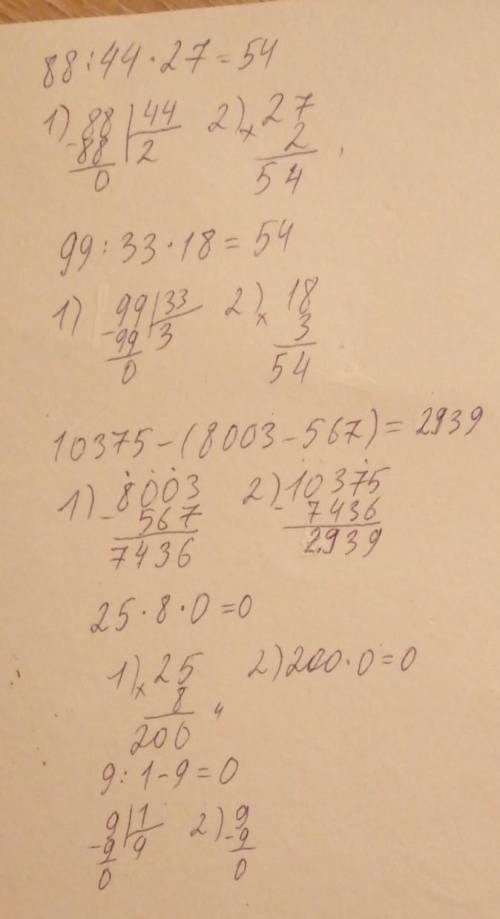 88:44·27=54
1) -88 |44 2) ×27
88 |2 2
0 54
99:33·18=54
1) -99|33 2) ×18
99|3 3
0 54
10375-(8003-567)=2939
1) -8003 2) -10375
567 7436
7436 2939
25·8·0=0
1) ×25 2) 200·0=0
8
200
9:1-9=0
-9|1 2) -9
9|9 9
0 0